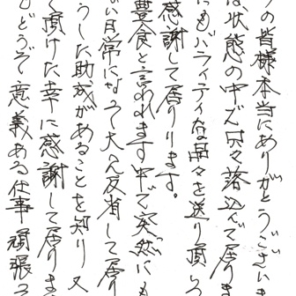 の皆様本当にありがとうございま
状態の中で只々落込んで居りま
にもバラィティな品々を送り頂
感謝して居ります。
豊食と言われます中で突然にも
い日常になって大え反省して居り
うした助があることを知り又
く頂けた幸に感謝して居りま
どうぞ意義ある仕事頑張